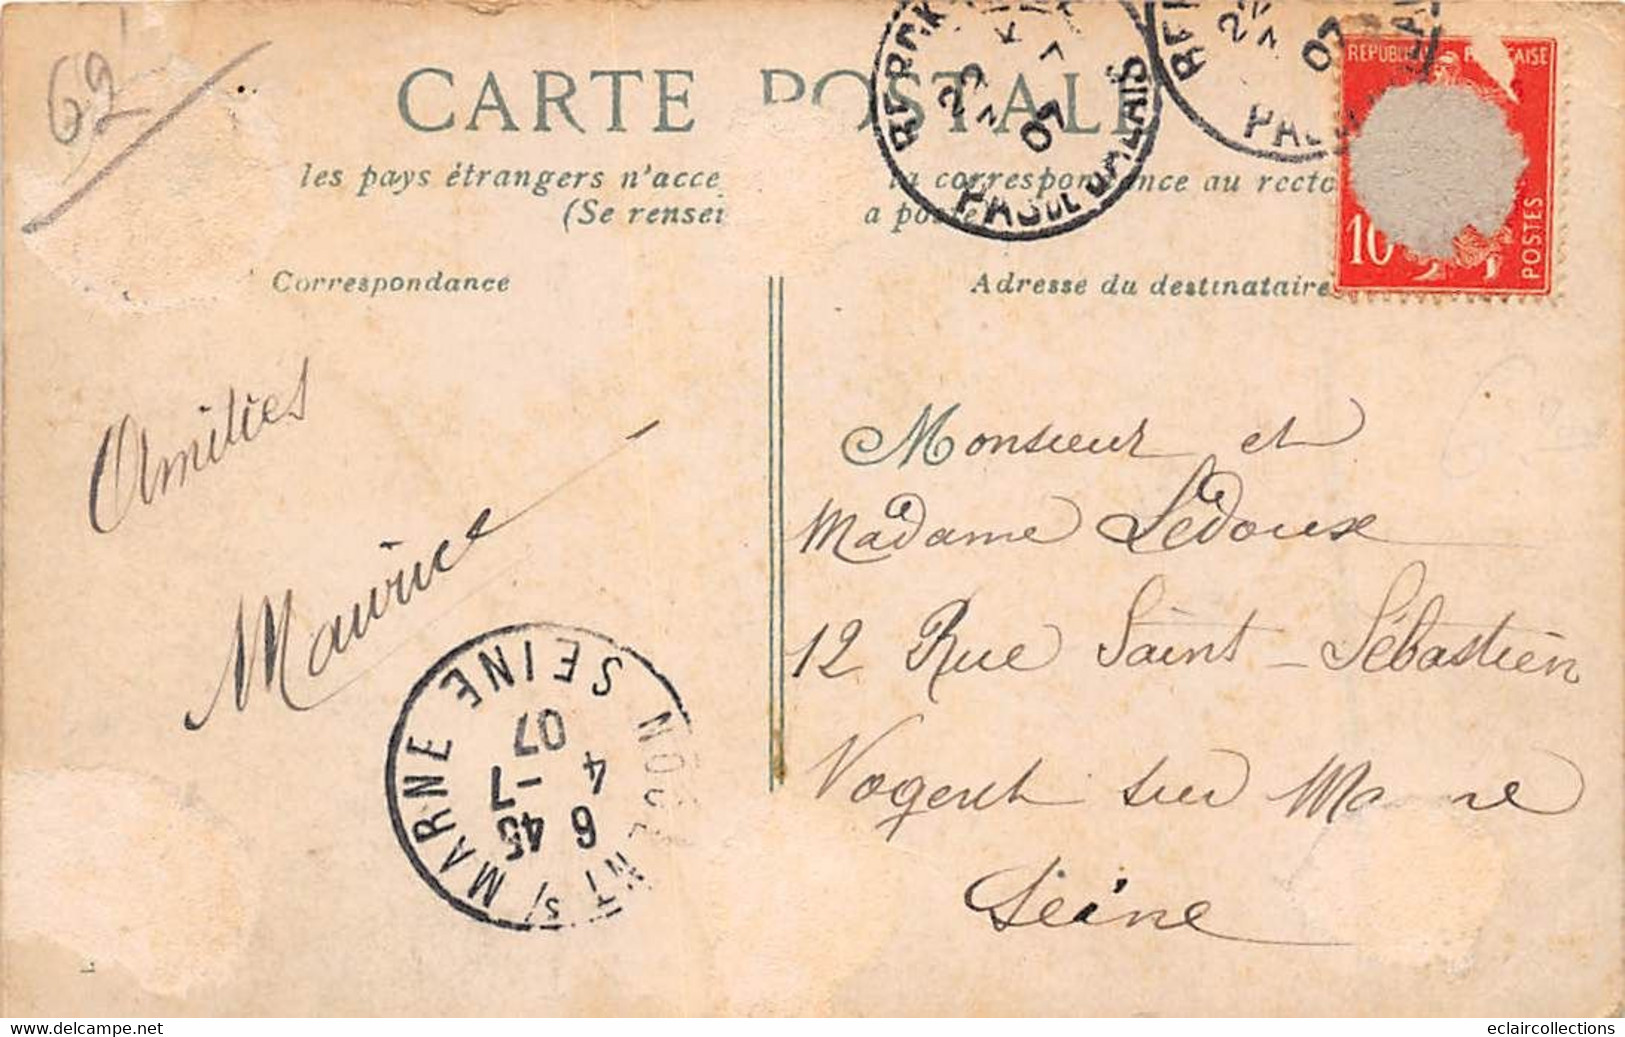 62
CARTE POSTALE
les pays étrangers n'acce la correspondance au recto
(Se rensei a poste
Correspondance
Adresse du destinataire
BERCK
PAS DE CALAIS
07
PAS
07
REPUBLIQUE FRANÇAISE
10
POSTES
Amitiés
Maurice
Monsieur et
Madame Ledoux
12 Rue Saint-Sébastien
Nogent sur Marne
Seine
NOGENT S/MARNE SEINE
6 45
4 -7
07
eclaircollections